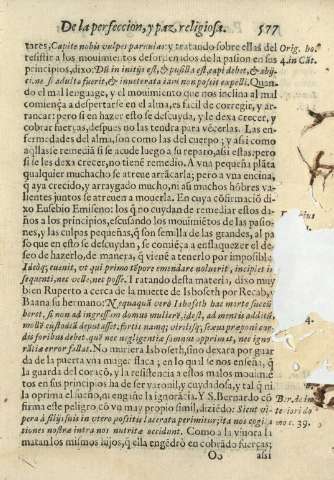 De la perfeccion, y paz, religiosa. 577
tares, Capite nobis vulpes paruulas: y tratando sobre ellas del
resistir a los mouimientos desordenados de la pasion en sus
principios, dixo: Dū in initijs est, & pusilla est, capi debet, & abij-
ne si adulta fuerit, & inueterata iam non possit expelli. Quan-
do el mal lenguage, y el mouimiento que nos inclina al mal
comiença a despertarse en el alma, es facil de corregir, y ar-
rancar: pero si en hazer esto se descuyda, y le dexa crecer, y
cobrar fuerças, despues no las tendra para vécerlas. Las en-
fermedades del alma, son como las del cuerpo; y assi como
aqllas se remediā si se acude luego a su reparo, assi estas: pero
si se les dexa crecer, no tiene remedio. A vna pequeña plāta
qualquier muchacho se atreue arrācarla; pero a vna encina,
q̄ aya crecido, y arraygado mucho, ni assi muchos hōbres va-
lientes juntos se atreuen a mouerla. En cuya cōfirmació di-
xo Eusebio Emisseno: los q̄ no cuydan de remediar estos da-
ños a los principios, escusando los mouimiétos de las passio-
nes, y las culpas pequeñas, q̄ son semilla de las grandes, al pas
so que en esto se descuydan, se comiéça a enflaquezer el de-
seo de hazerlo, de manera, q̄ viene a tenerlo por impossible
Ideoq; euenit, vt qui primo tēpore emendare noluerit, incipiet in
sequenti, nec velle, nec posse. Tratando desta materia, dixo muy
bien Ruperto a cerca de la muerte de Isboseth por Recab, y
Baana su hermano: Nequaquā verò Isboseth hac morte succū
beret, si non ad ingressum domus mulierē, idest, ad mentis additū
molle custodiā deputasset, fortis namq; virilisq; sexus præponi cor-
dis foribus debet, quē nec negligentiæ somnus opprimat, nec igno
rātiæ error fallat. No muriera Isboseth, sino dexara por guar-
da de la puerta vna muger flaca; en lo qual se nos enseña, q̄
la guarda del coraçō, y la resistencia a estos malos mouimié
tos en sus principios ha de ser varonil, y cuydadosa, y tal q̄ ni
la oprima el sueño, ni engañe la ignorácia. Y S. Bernardo cō
firma este peligro cō vn muy propio simil, diziédo: Sicut vi-
pera à filijs suis in vtero positis lacerata perimitur; ita nos cogi
tiones nostræ intra nos nutritæ occidunt. Como a la viuora la
matan los mismos hijos, q̄ ella engēdrò en cobrādo fuerças;
Oo assi
Orig. ho.
4. in Cāt.
4.
Ber. de in-
teriori do
mo c. 39.